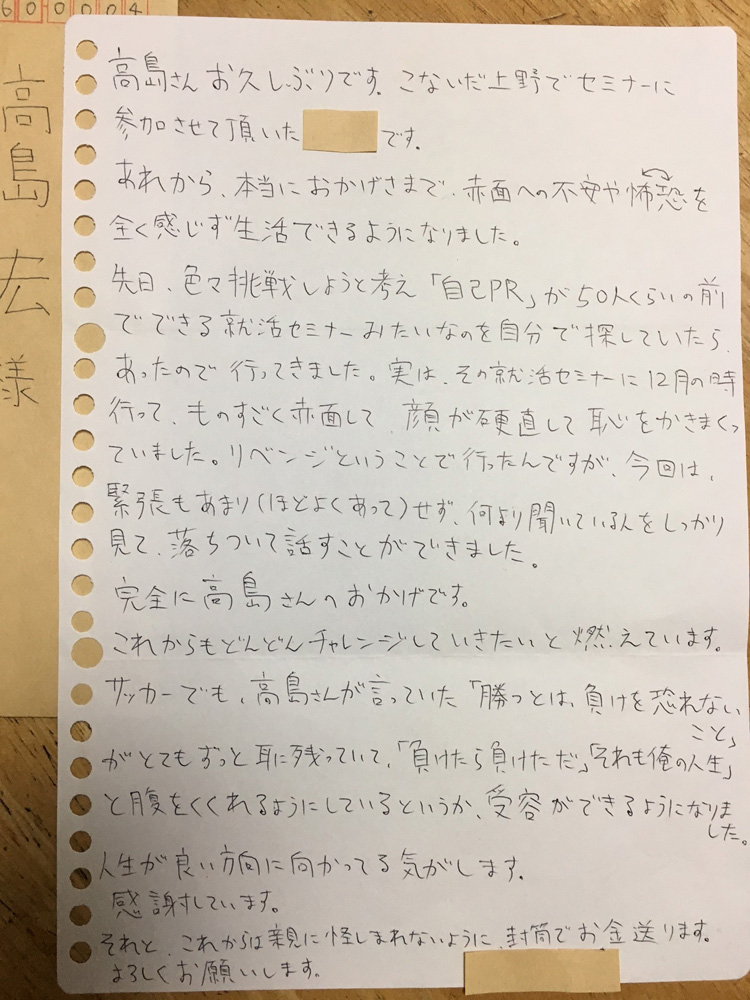 600004
高島宏様
高島さんお久しぶりです。こないだ上野でセミナーに
参加させて頂いた です。
あれから、本当におかげさまで、赤面への不安や怖恐を
全く感じず生活できるようになりました。
先日、色々挑戦しようと考え「自己PR」が50人くらいの前
でできる就活セミナーみたいなのを自分で探していたら、
あったので行ってきました。実は、その就活セミナーに12月の時
行って、ものすごく赤面して、顔が硬直して恥をかきまくっ
ていました。リベンジということで行ったんですが、今回は、
緊張もあまり(ほどよくあって)せず、何より聞いている人をしっかり
見て、落ちついて話すことができました。
完全に高島さんのおかげです。
これからもどんどんチャレンジしていきたいと燃えています。
サッカーでも、高島さんが言っていた「勝つとは、負けを恐れない
こと」
がとてもずっと耳に残っていて、「負けたら負けただ」「それも俺の人生」
と腹をくくれるようにしているというか、受容ができるようになりま
した。
人生が良い方向に向かってる気がします。
感謝しています。
それと、これからは親に怪しまれないように、封筒でお金送ります。
よろしくお願いします。